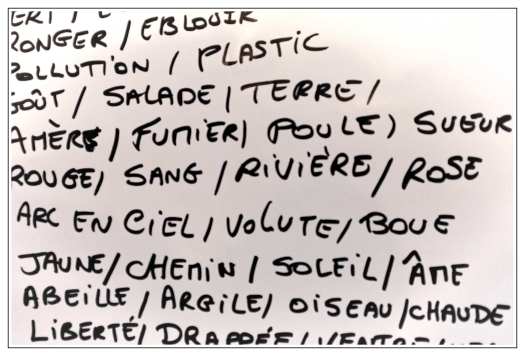 RONGER / EBLOUIR
POLLUTION / PLASTIC
GOÛT / SALADE / TERRE /
AMÈRE / FUMIER / (POULE) SUEUR
ROUGE / SANG / RIVIÈRE / ROSE
ARC EN CIEL / VOLUTE / BOUE
JAUNE / CHEMIN / SOLEIL / ÂME
ABEILLE / ARGILE / OISEAU / CHAUDE
LIBERTÉ / DRAPÉE / VENTRE /